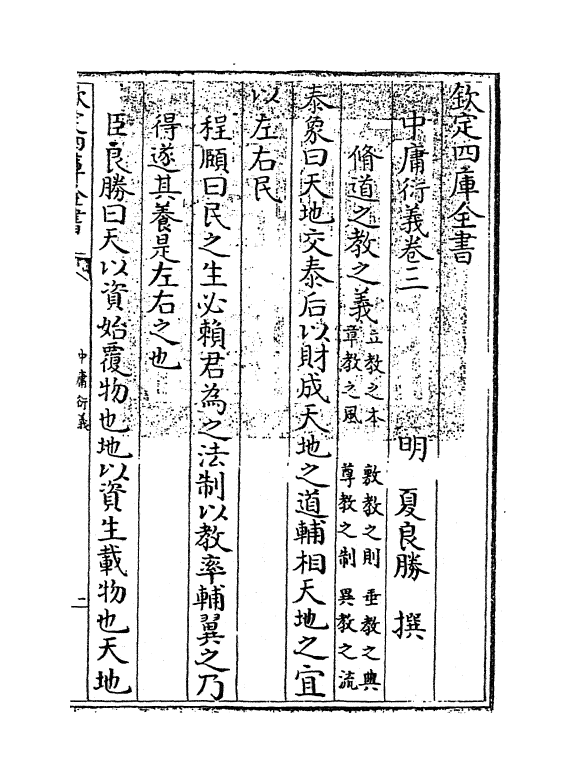 欽定四庫全書
中庸衍義卷三
明 夏良勝 撰
脩道之教之義
立教之本 敷教之則 垂教之典
章教之風 尊教之制 異教之流
泰象曰天地交泰后以財成天地之道輔相天地之宜
以左右民
程頤曰民之生必賴君為之法制以教率輔翼之乃
得遂其養是左右之也
臣良勝曰天以資始覆物也地以資生載物也天地
欽定四庫全書
中庸衍義